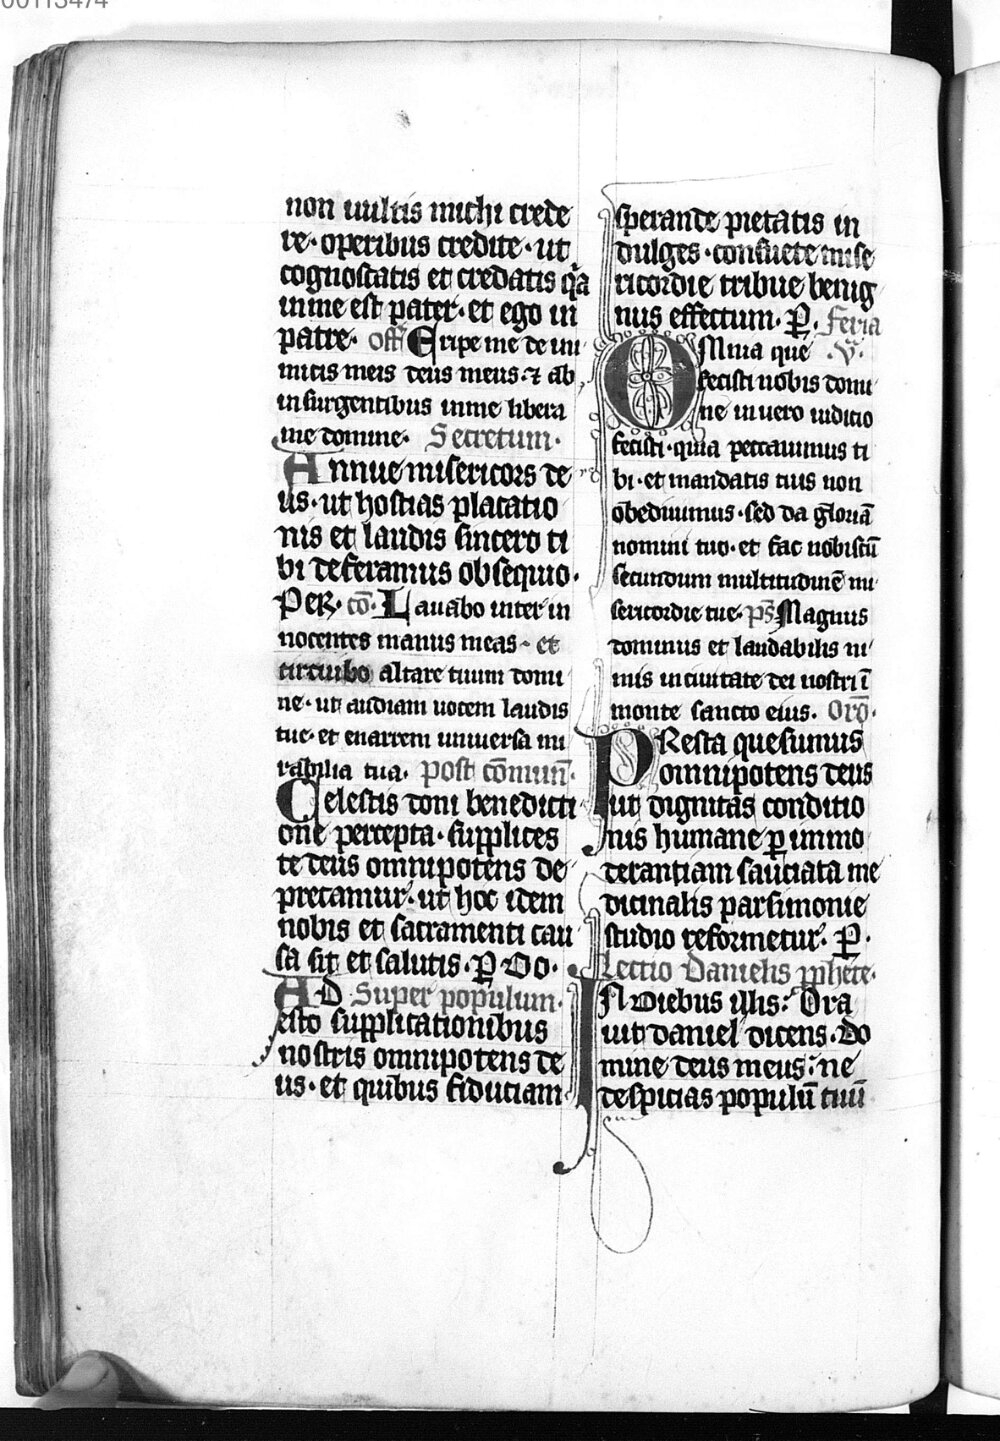 00113474
non uultis michi crede
re · operibus credite · ut
cognoscatis et credatis q̄a
in me est pater · et ego in
patre · Off̄ Eripe me de ini
micis meis deus meus · ⁊ ab
insurgentibus in me libera
me domine · Secretum ·
Annue misericors de
us · ut hostias placatio
nis et laudis sincero ti
bi deferamus obsequio ·
Per · cō · Lauabo inter in
nocentes manus meas · et
circuibo altare tuum domi
ne · ut audiam uocem laudis
tue · et enarrem uniuersa mi
rabilia tua · post cōmun̄ ·
Celestis doni benedicti
one percepta · supplices
te deus omnipotens de
precamur · ut hoc idem
nobis et sacramenti cau
sa sit et salutis · P̱ Do ·
AD Super populum ·
esto supplicationibus
nostris omnipotens de
us · et quibus fiduciam
sperande pietatis in
dulges · consuete mise
ricordie tribue benig
nus effectum · P̱ · Feria
OMnia que · v̄ ·
fecisti nobis domi
ne in uero iudicio
fecisti · quia peccauimus ti
bi · et mandatis tuis non
obediuimus · sed da gl̄oriā
nomini tuo · et fac nobiscū
secundum multitudinē mi
sericordie tue · ps̄ Magnus
dominus et laudabilis ni
mis in ciuitate dei nostri ī
monte sancto eius · Orō ·
PResta quesumus
omnipotens deus
ut dignitas conditio
nis humane p̱ immo
derantiam sauciata me
dicinalis parsimonie
studio reformetur · P̱ ·
Lectio Danielis pphete ·
IN Diebus illis : Ora
uit daniel dicens · Do
mine deus meus : ne
despicias populū tuū